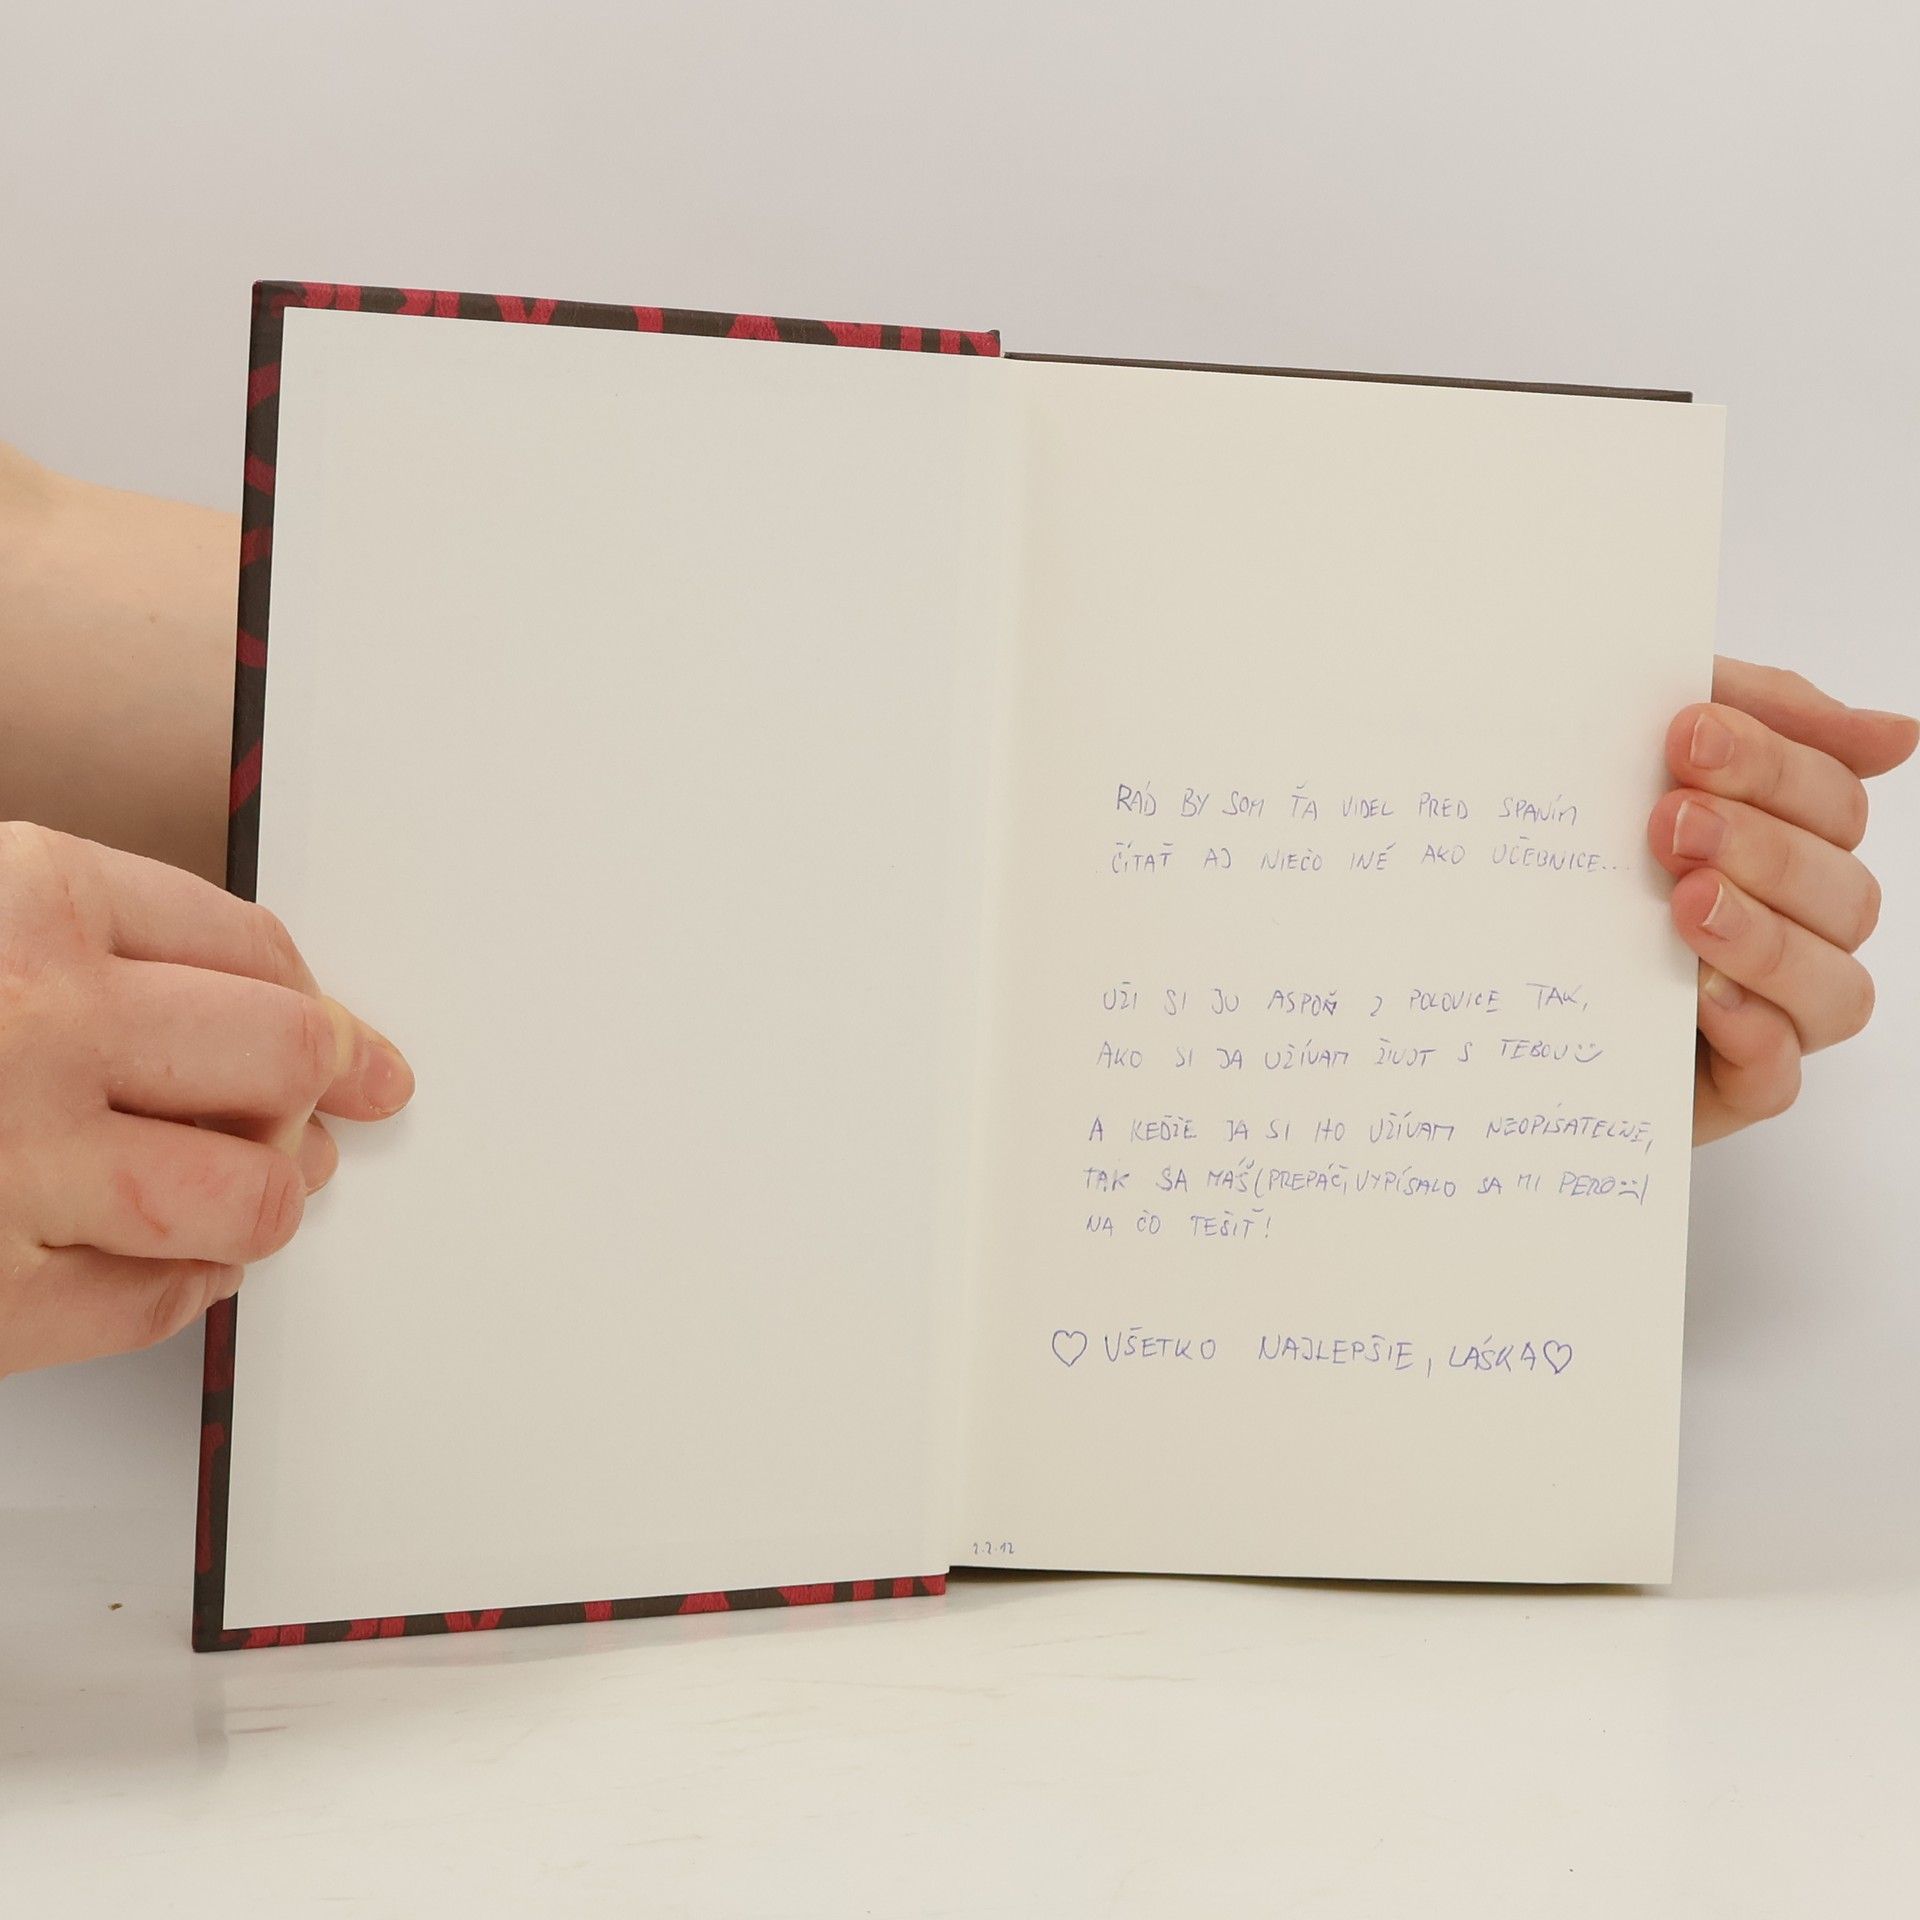 RÁD BY SOM ŤA VIDEL PRED SPANÍM
ČÍTAŤ AJ NIEČO INÉ AKO UČEBNICE...
UŽI SI JU ASPOŇ Z POLOVICE TAK,
AKO SI JA UŽÍVAM ŽIVOT S TEBOU :)
A KEĎŽE JA SI HO UŽÍVAM NEOPÍSATEĽNE,
TAK SA MÁŠ (PREPÁČ, VYPÍSALO SA MI PERO :()
NA ČO TEŠIŤ!
♡ VŠETKO NAJLEPŠIE, LÁSKA ♡
2.2.12